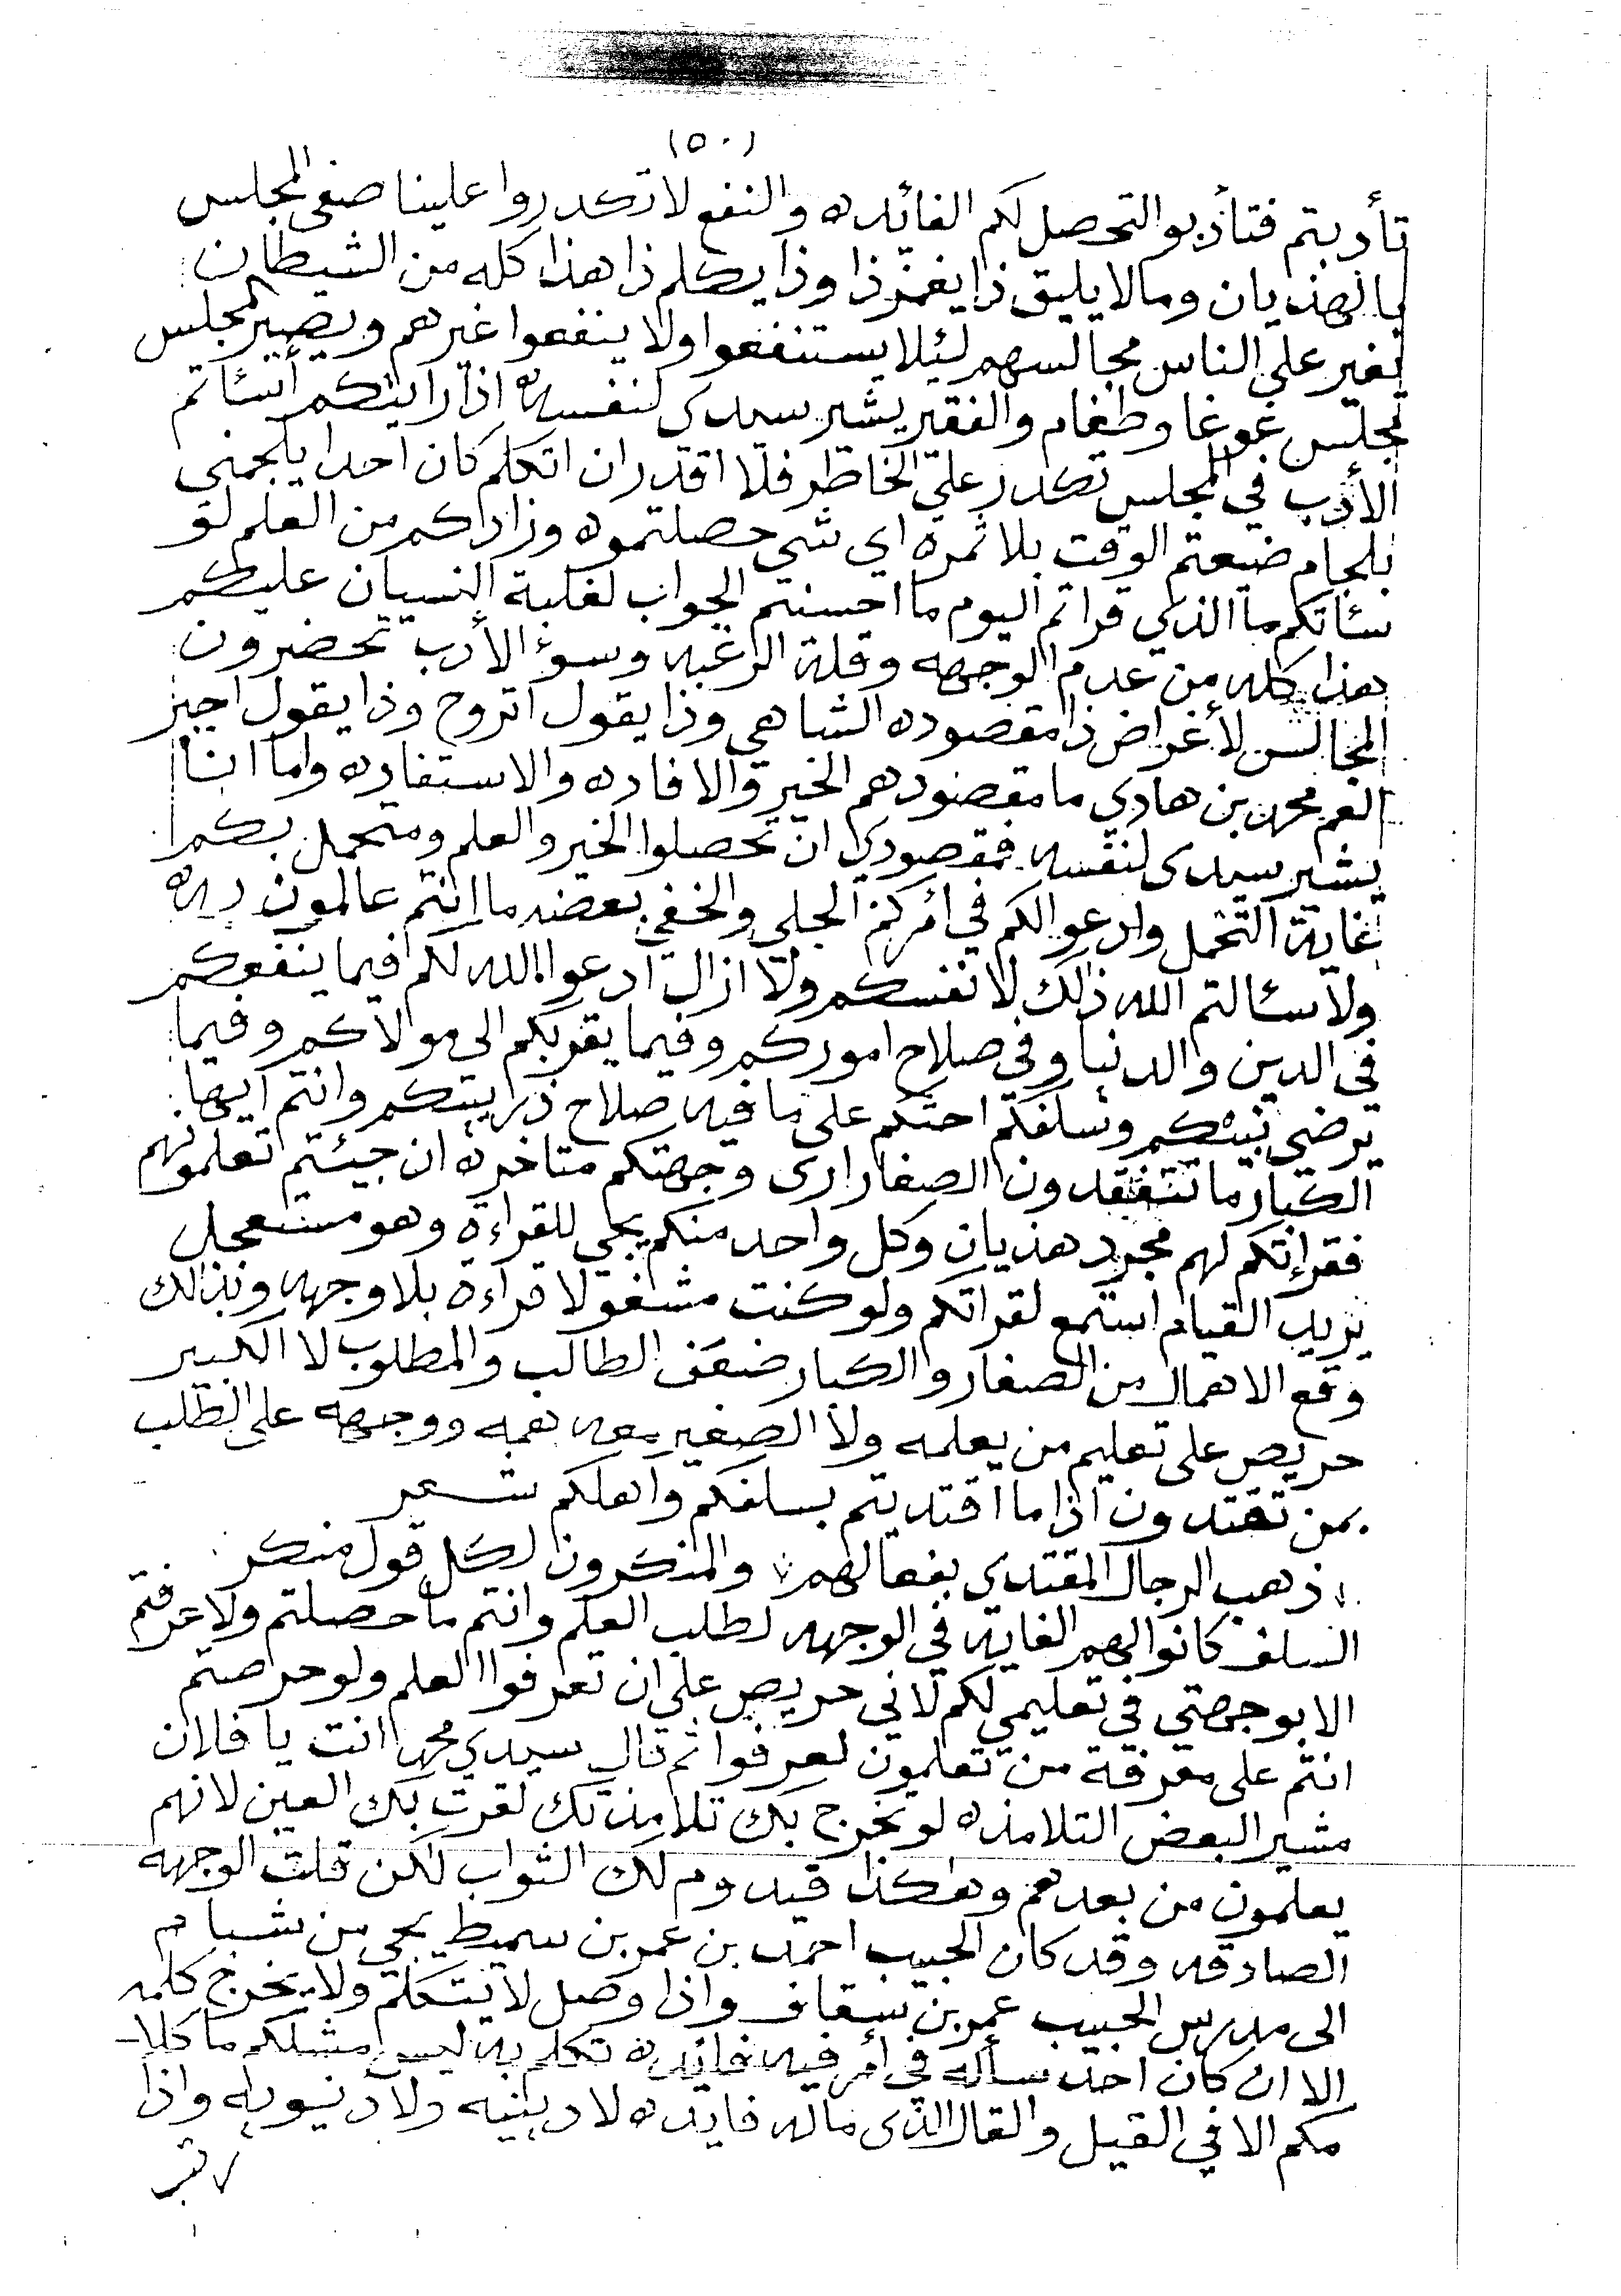 (٥٠)
تأدبتم فتأدبوا لتحصل لكم الفائده والنفع لا تكدروا علينا صفى المجلس
بالهذيان ومالا يليق ذا يغمز ذا وذا يكلم ذا هذا كله من الشيطان
يغير على الناس مجالسهم لئلا يستنفعوا ولا ينفعوا غيرهم ويصير المجلس
مجلس غوغا وطغام والفقير يشير سيدى لنفسه اذا رايتكم أسئاتم
الأدب في المجلس تكدر علي الخاطر فلا اقدر ان اتكلم كان احدا يلجمني
بلجام ضيعتم الوقت بلا ثمره اي شي حصلتموه وزادكم من العلم لو
سئاتكم ما الذي قراتم اليوم ما احسنتم الجواب لغلبة النسيان عليكم
هذا كله من عدم الوجهه وقلة الرغبه وسوء الأدب تحضرون
المجالس لأغراض ذا مقصوده الشاهي وذا يقول اتروح وذا يقول اجبر
العم محمد بن هادي ما مقصودهم الخير والافاده والاستفاده واما انا
يشير سيدى لنفسه فمقصودي ان تحصلوا الخير والعلم ومتحمل بكم
غاية التحمل وادعوا لكم في أمركم الجلي والخفي بعضه ما انتم عالمون به
ولا سئالتم الله ذلك لانفسكم ولا ازال ادعوا الله لكم فيما ينفعكم
في الدين والدنيا وفي صلاح اموركم وفيما يقربكم الى مولاكم وفيما
يرضي نبيكم وسلفكم احثكم على ما فيه صلاح ذراييتكم وانتم ايها
الكبار ما تتفقدون الصغار ارى وجهتكم متاخره ان جيئتم تعلمونهم
فقرائتكم لهم مجرد هذيان وكل واحد منكم يجي للقراءة وهو مستعجل
يريد القيام استمع لقراتكم ولو كنت مشغولا قراءة بلا وجهه وبذلك
وقع الاهمال من الصغار والكبار ضعف الطالب والمطلوب لا الكبير
حريص على تعليم من يعلمه ولا الصغير معه همه ووجهه على الطلب
بمن تقتدون اذا ما اقتديتم بسلفكم واهلكم شعر
ذهب الرجال المقتدى بفعالهم والمنكرون لكل قول منكر
السلف كانوا لهم الغايه في الوجهه لطلب العلم وانتم ما حصلتم ولا عرفتم
الا بوجهتي في تعليمي لكم لاني حريص على ان تعرفوا العلم ولو حرصتم
انتم على معرفة من تعلمون لعرفوا ثم قال سيدي محمد انت يا فلان
مشير البعض التلامذه لو تخرج بك تلامذتك لقرت بك العين لانهم
يعلمون من بعدهم وهكذا فيدوم لك الثواب لكن قلت الوجهه
الصادقه وقد كان الحبيب احمد بن عمر بن سميط يجي من شبام
الى مدرس الحبيب عمر بن سقاف واذا وصل لا يتكلم ولا يخرج كلمه
الا ان كان احد سأله في أمر فيه فائده تكلم به ليس مثلكم ما كلا
مكم الا في القيل والقال الذى ماله فايده لا دينيه ولا دنيويه واذا